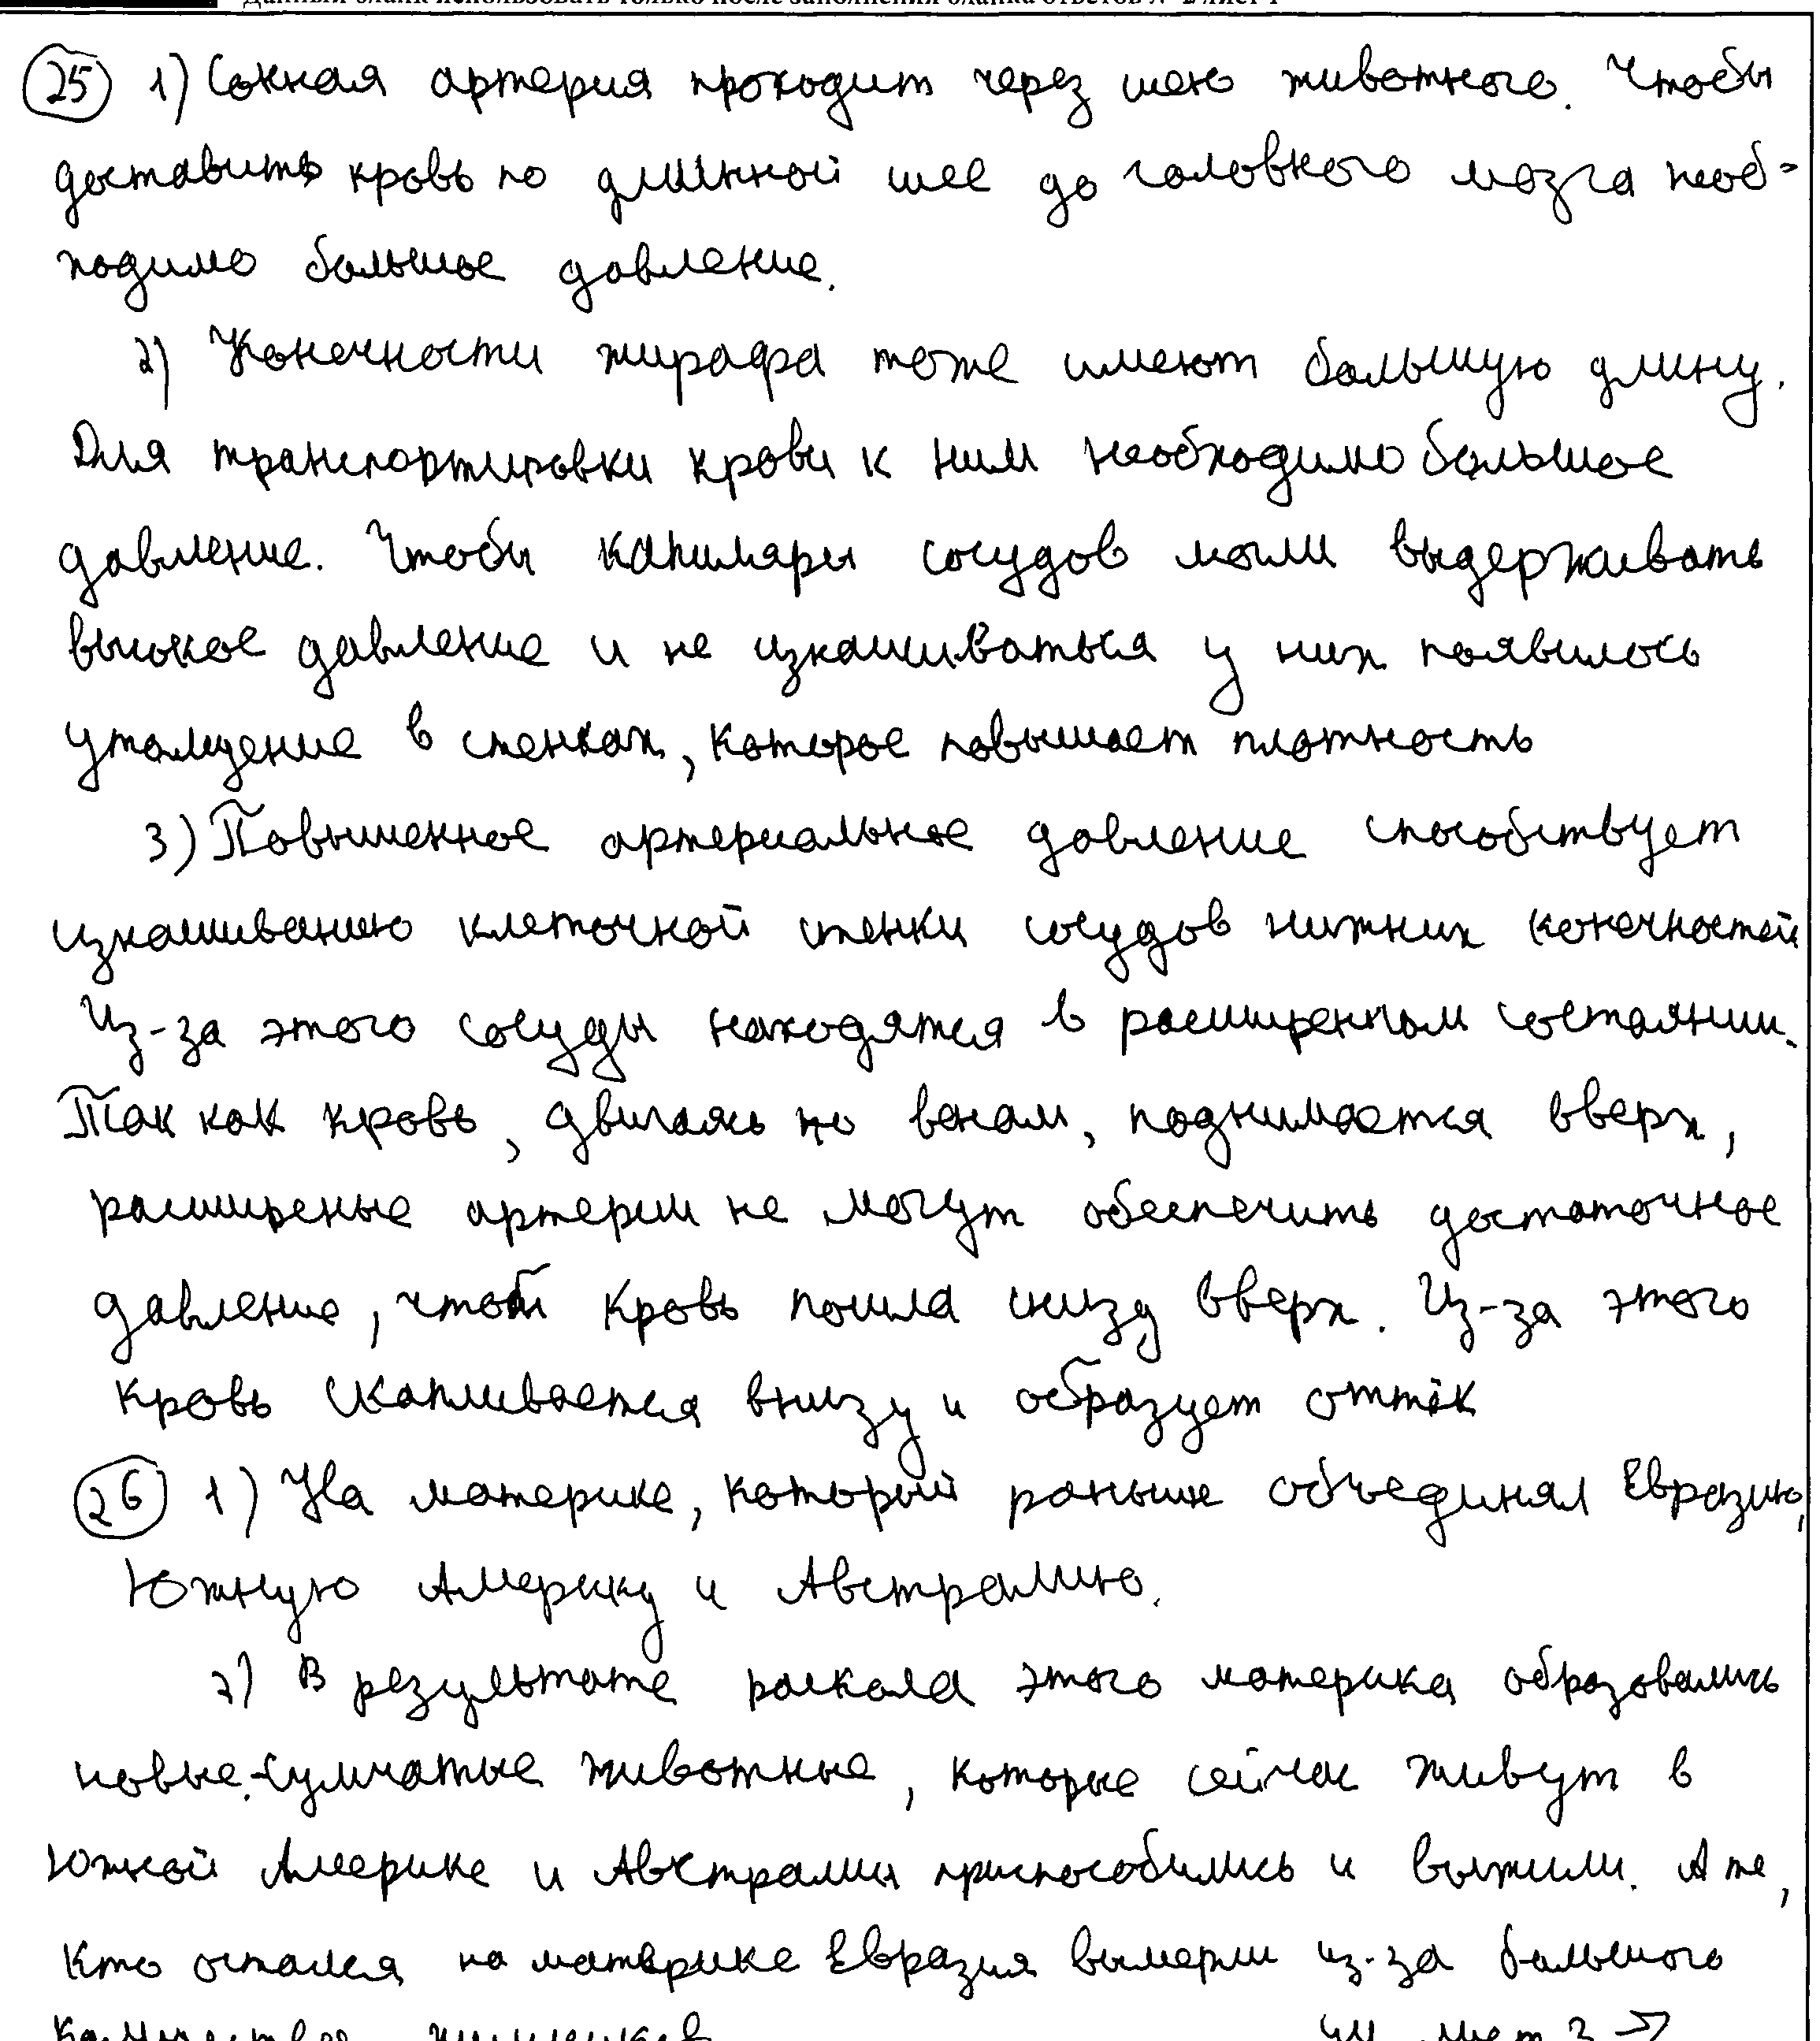 Данный бланк использовать только после заполнения бланка ответов № 2 лист 1
(25) 1) Сонная артерия проходит через шею животного. Чтобы
доставить кровь по длинной шее до головного мозга необ-
ходимо большое давление.
2) Конечности жирафа тоже имеют большую длину.
Для транспортировки крови к ним необходимо большое
давление. Чтобы капилляры сосудов могли выдерживать
высокое давление и не изнашиваться у них появилось
утолщение в стенках, которое повышает плотность
3) Повышенное артериальное давление способствует
изнашиванию клеточной стенки сосудов нижних конечностей
Из-за этого сосуды находятся в расширенном состоянии.
Так как кровь, двигаясь по венам, поднимается вверх,
расширеные артерии не могут обеспечить достаточное
давление, чтоб кровь пошла снизу вверх. Из-за этого
кровь скапливается внизу и образует оттёк
(26) 1) На материке, который раньше объединял Евразию,
Южную Америку и Австралию.
2) В результате раскола этого материка образовались
новые. Сумчатые животные, которые сейчас живут в
Южной Америке и Австралии приспособились и выжили. А те,
кто остался на материке Евразия вымерли из-за большого
количества хищников см лист 3 →